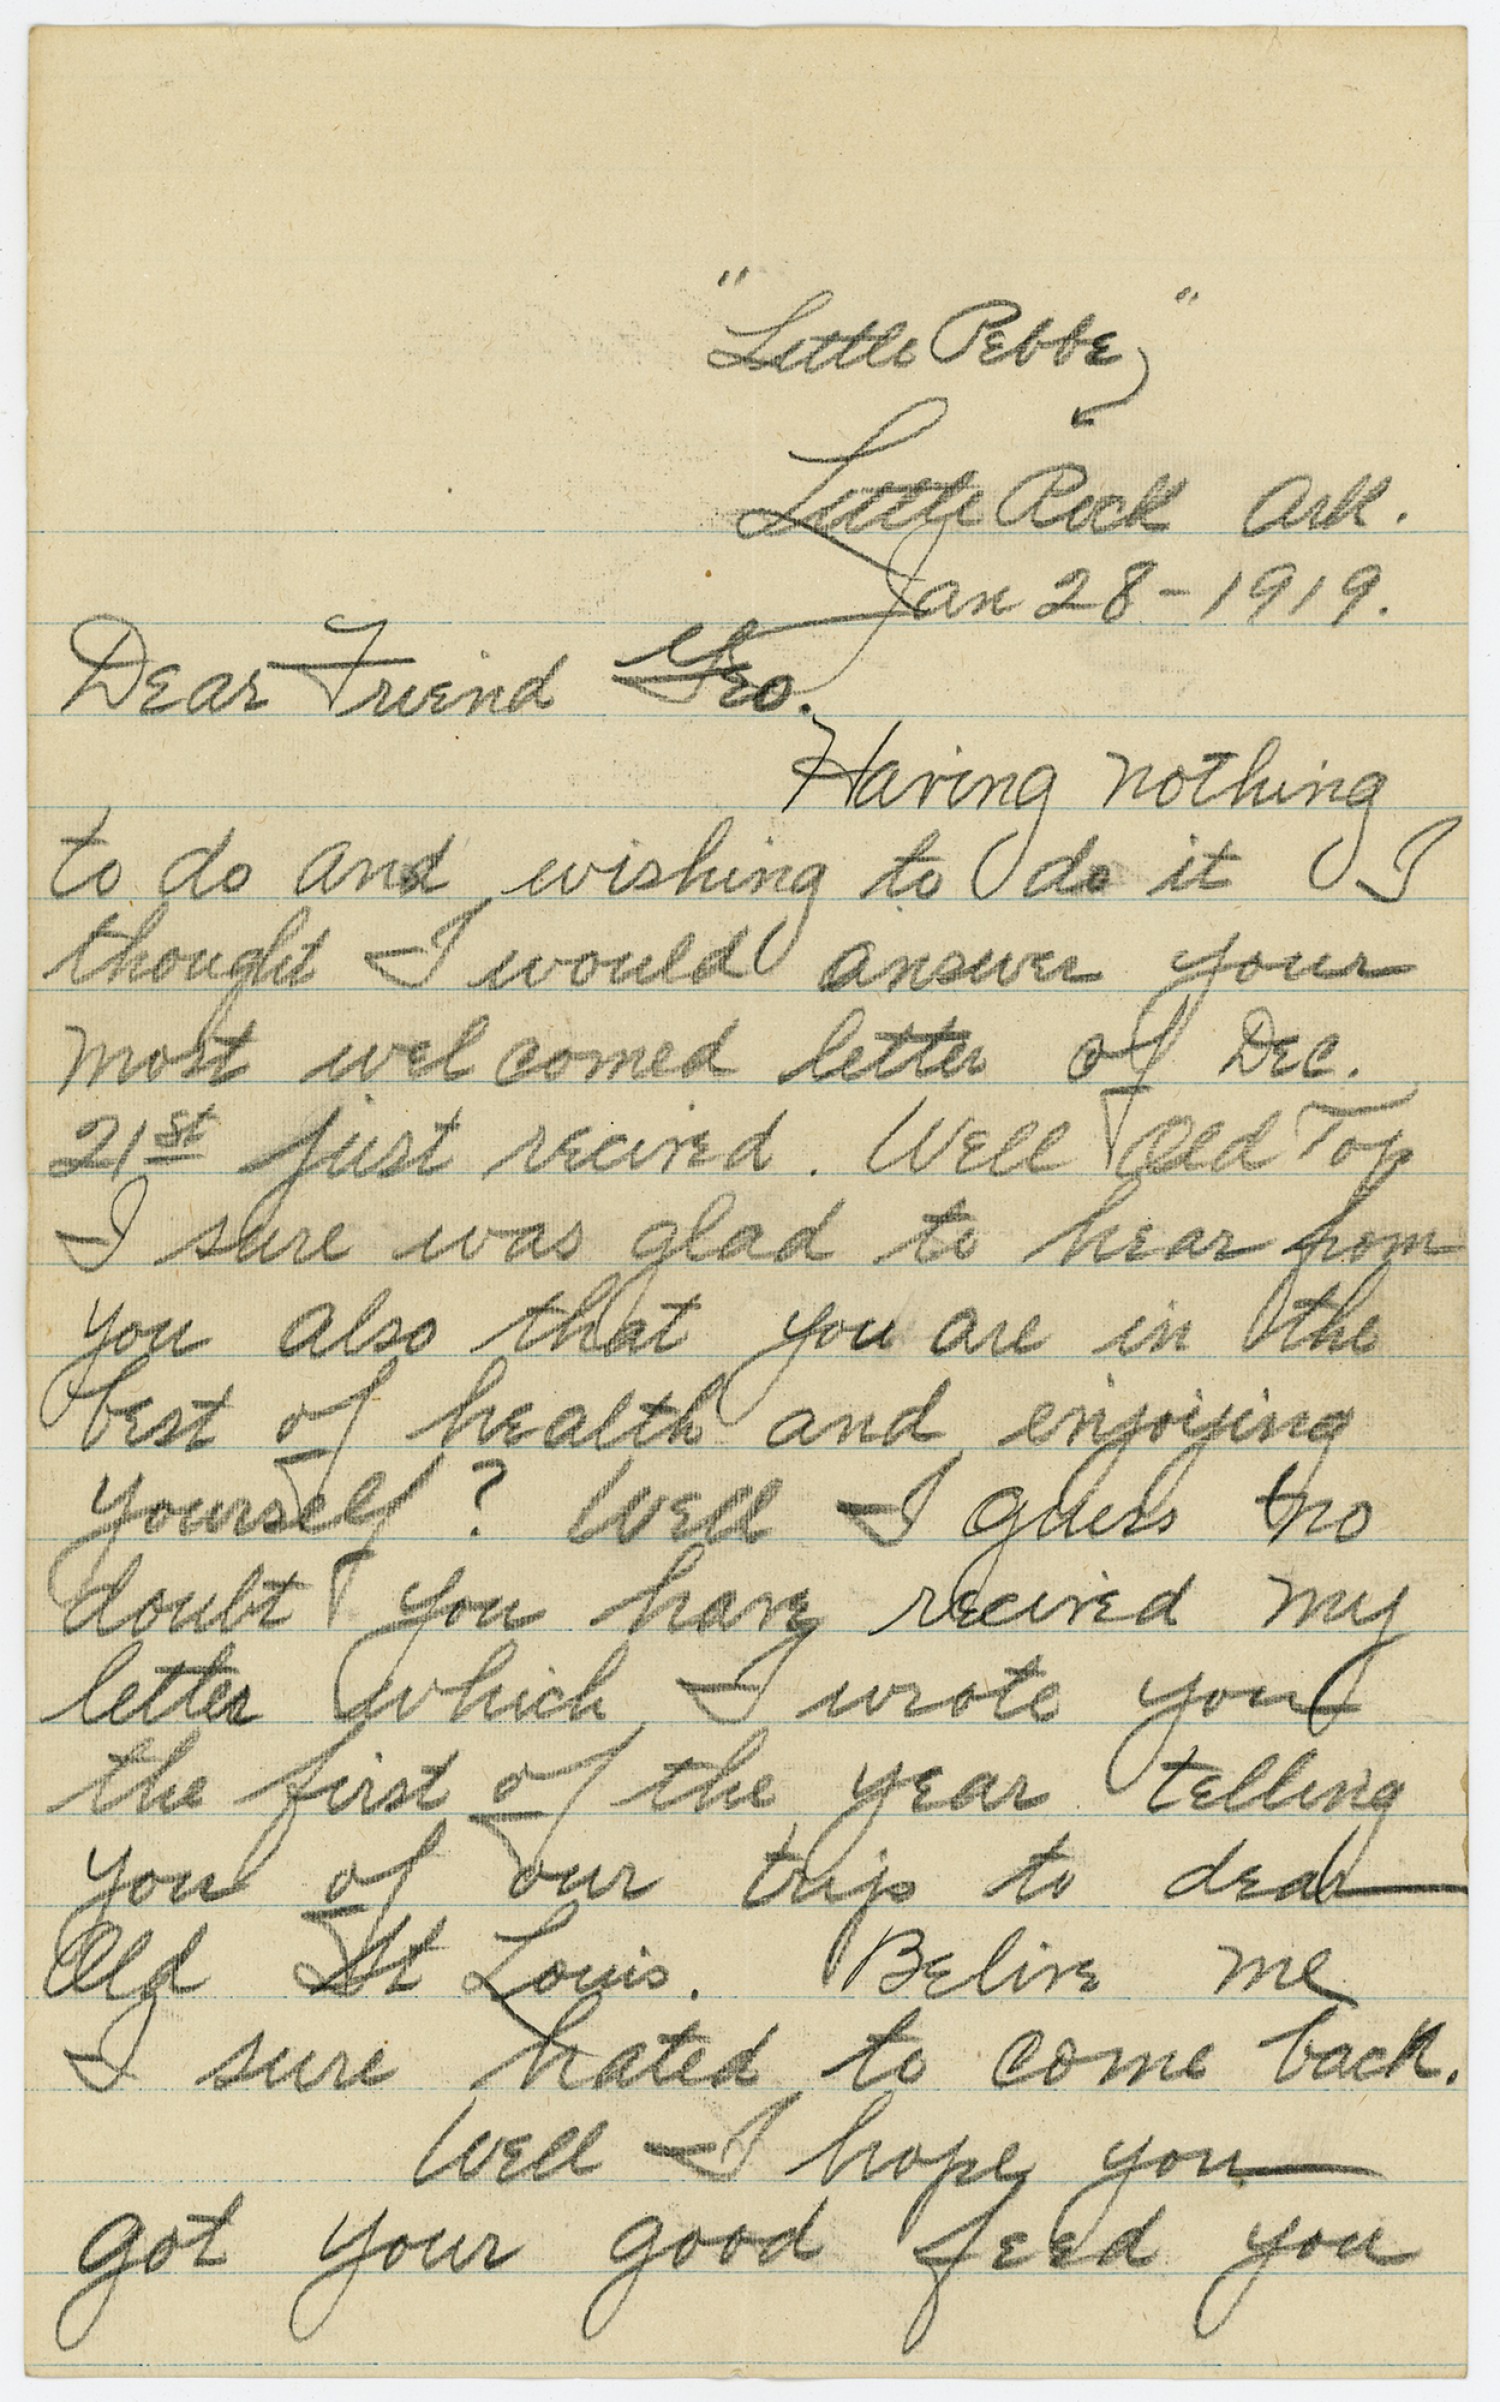 "Little Pebbe"
Little Rock Ark.
Jan 28-1919.
Dear Friend Geo.
Having nothing
to do and wishing to do it I
thought I would answer your
most welcomed letter of Dec.
21st just recived. Well Old Top
I sure was glad to hear from
you also that you are in the
best of health and enjoying
yourself? Well I guess no
doubt you have recived my
letter which I wrote you
the first of the year telling
you of our trip to dear
Old St Louis. Belive me
I sure hated to come back.
Well I hope you
got your good feed you